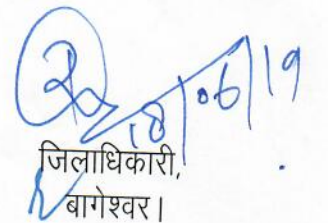 18/06/19
जिलाधिकारी,
बागेश्वर।